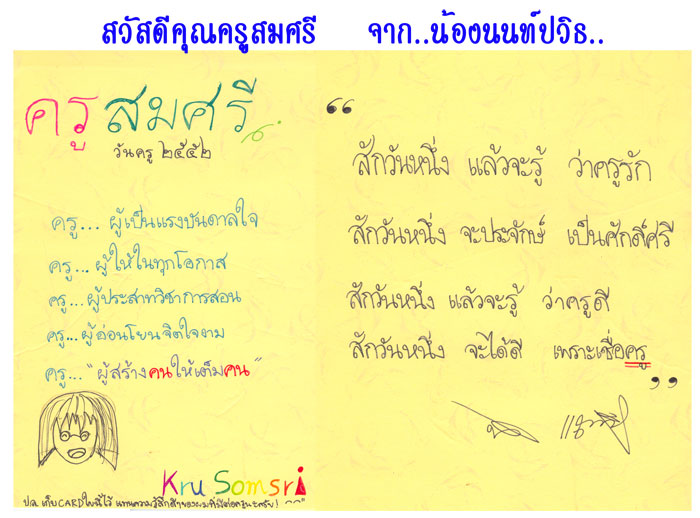 สวัสดีคุณครูสมศรี จาก..น้องนนท์ปวิธ..
ครูสมศรี
วันครู ๒๕๕๒
ครู... ผู้เป็นแรงบันดาลใจ
ครู... ผู้ให้ในทุกโอกาส
ครู... ผู้ประสาทวิชาการสอน
ครู... ผู้อ่อนโยนจิตใจงาม
ครู... "ผู้สร้างคนให้เต็มคน"
Kru Somsri
ปล. เก็บCARDใบนี้ไว้ แทนความรู้สึกดีๆของผมที่มีต่อครูนะครับ! ^^"
“
สักวันหนึ่ง แล้วจะรู้ ว่าครูรัก
สักวันหนึ่ง จะประจักษ์ เป็นศักดิ์ศรี
สักวันหนึ่ง แล้วจะรู้ ว่าครูดี
สักวันหนึ่ง จะได้ดี เพราะเชื่อครู
”